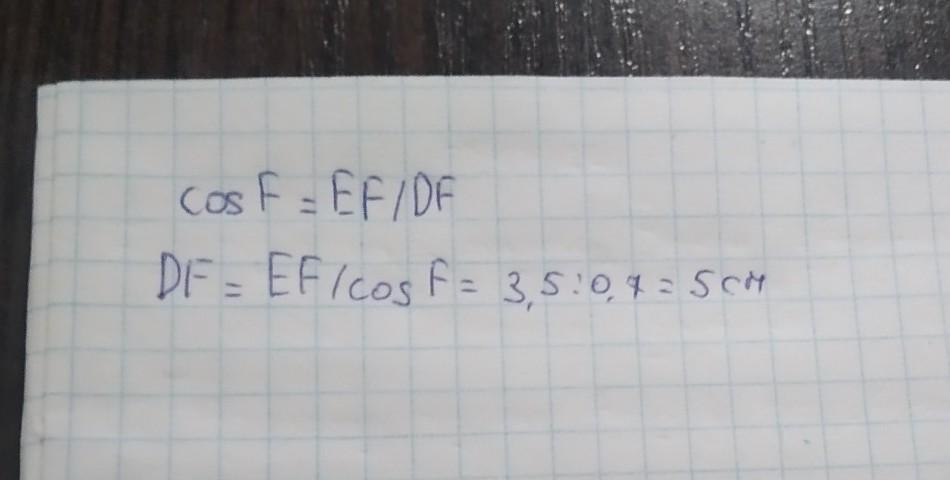 cos F = EF/DF
DF = EF/cos F = 3,5:0,7 = 5 см